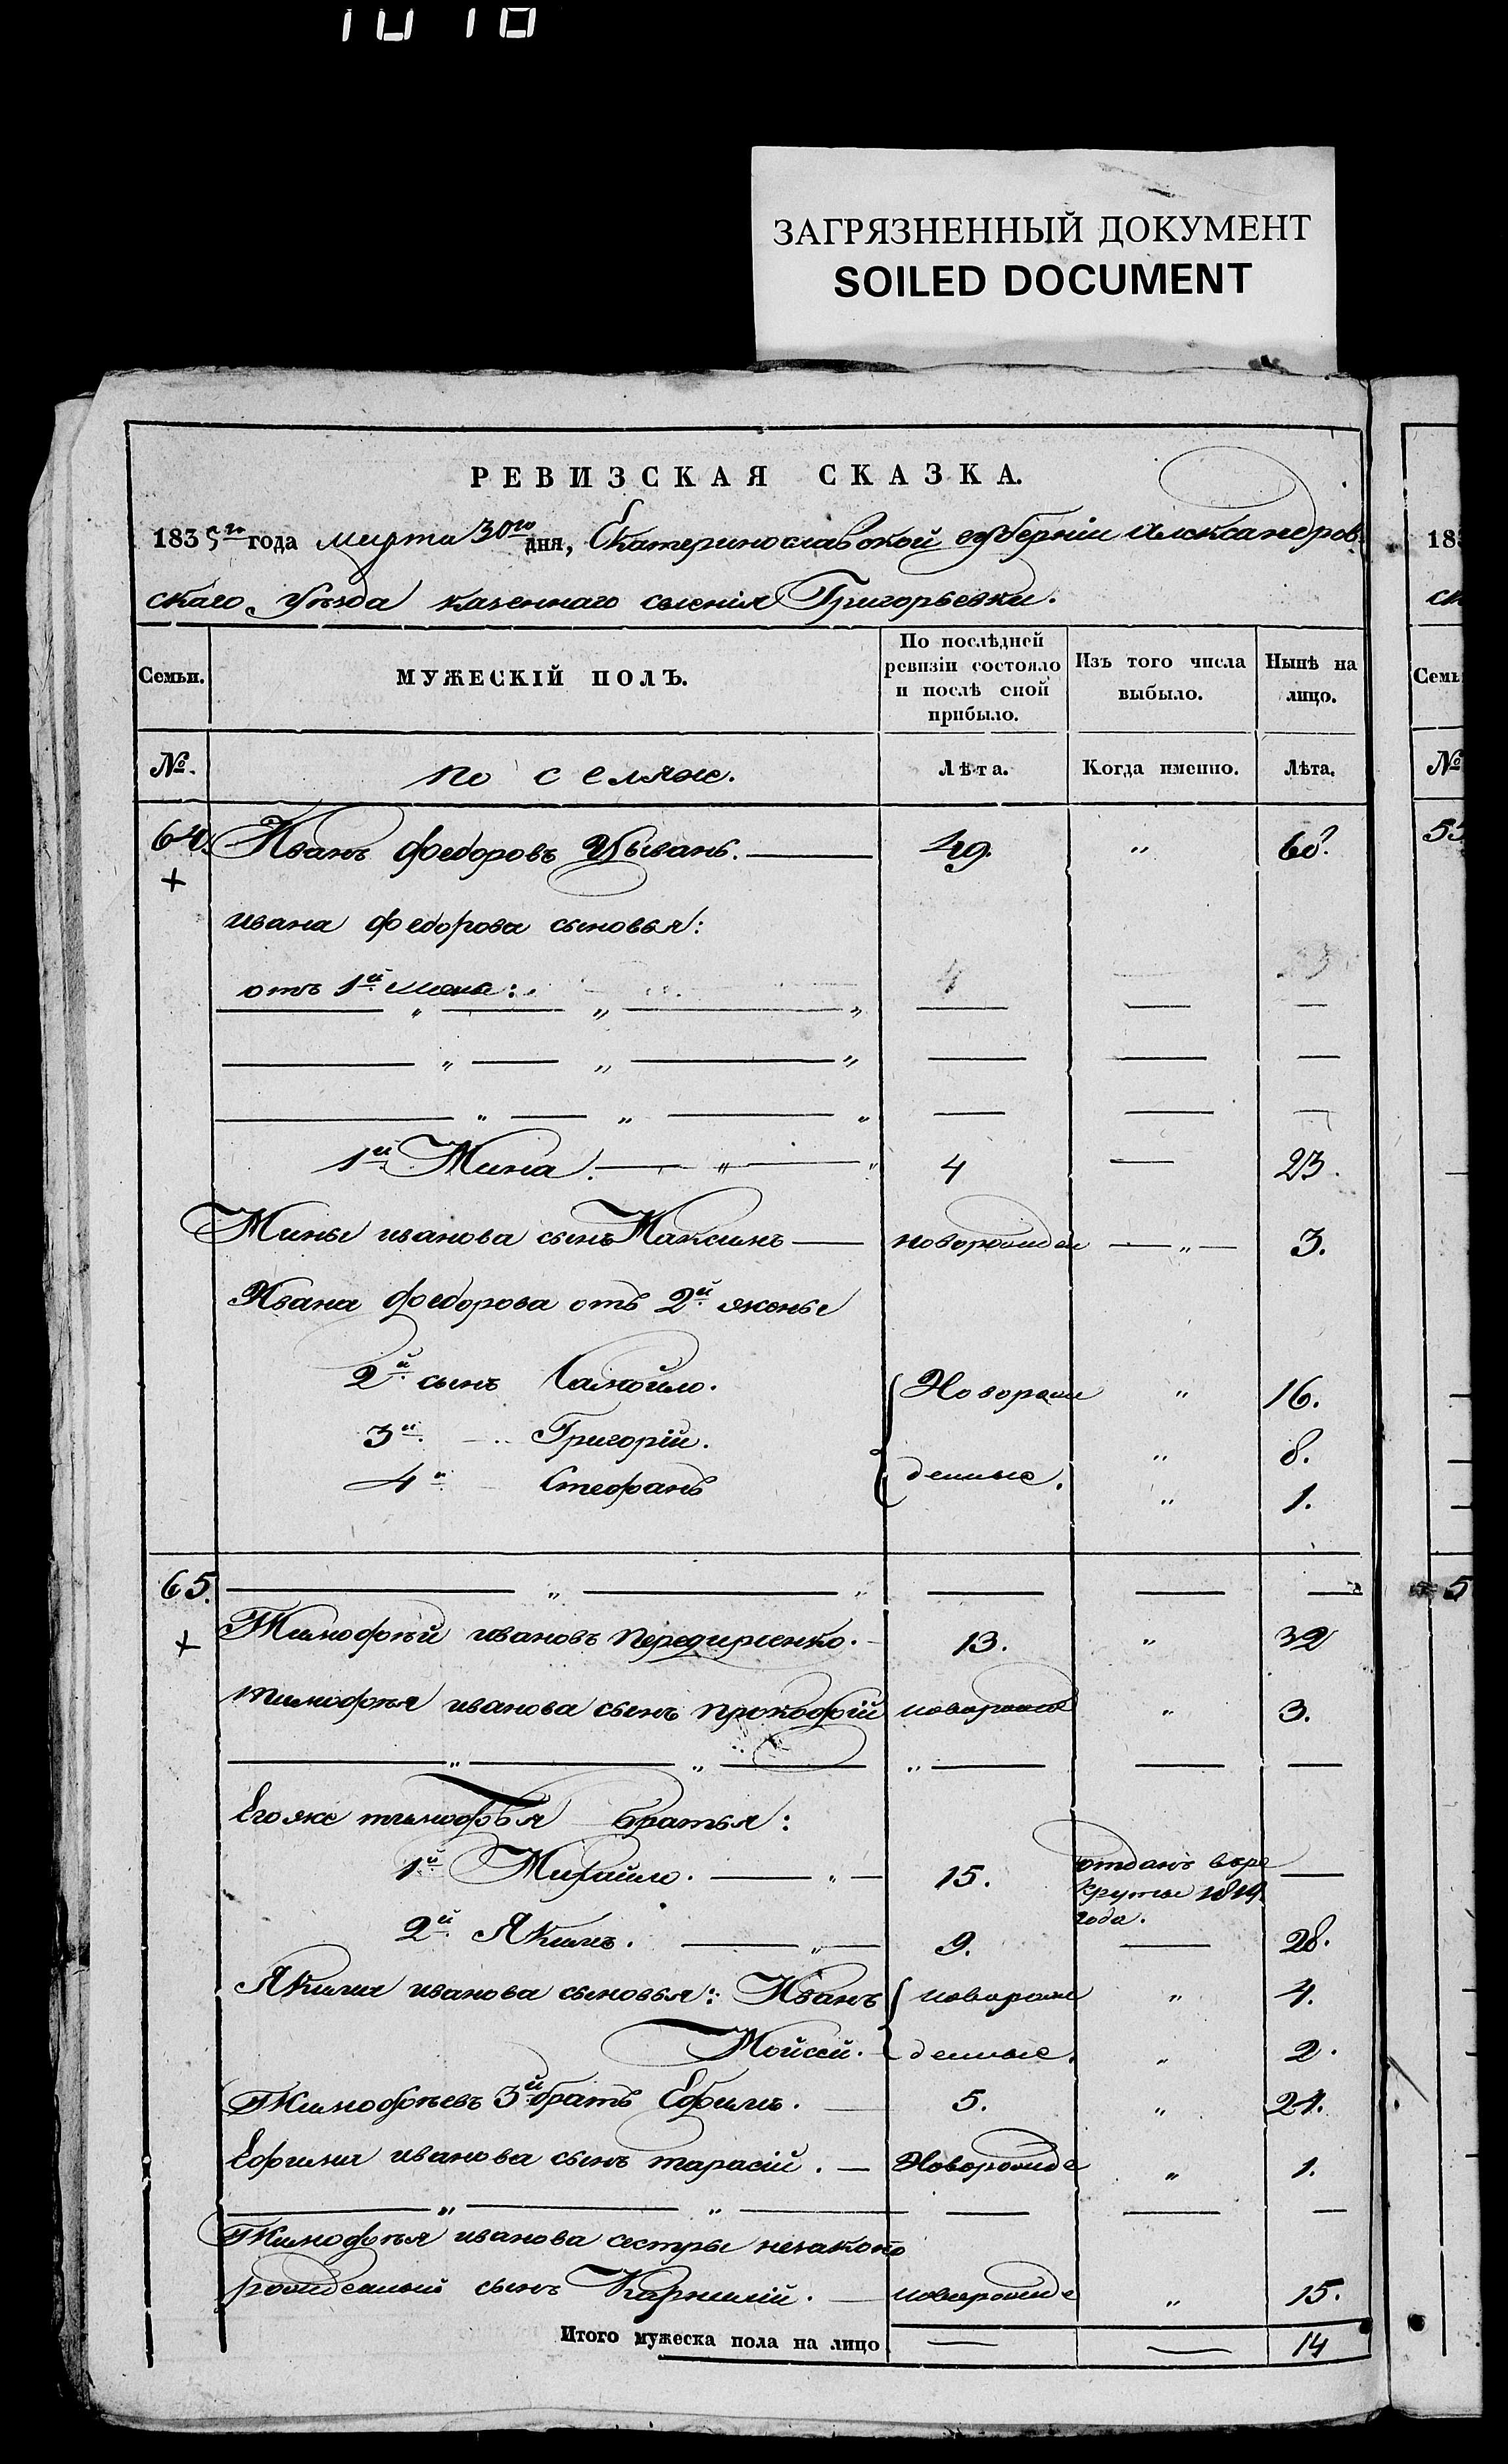 1010
ЗАГРЯЗНЕННЫЙ ДОКУМЕНТ
SOILED DOCUMENT
РЕВИЗСКАЯ СКАЗКА.
1835го года марта 30го дня, Екатеринославской губерніи Александров
скаго уѣзда казеннаго селенія Григорьевки.
Семьи. МУЖЕСКІЙ ПОЛЪ. По послѣдней ревизіи состояло и послѣ сной прибыло. Изъ того числа выбыло. Нынѣ на лицо.
№. поселяне. Лѣта. Когда именно. Лѣта.
64. Иванъ федоровъ Цыганъ. 49. " 68.
+
ивана федорова сыновья:
отъ 1й жены:
1й Мина. 4 — 23.
Мины иванова сынъ Максимъ новорожден — " — 3.
Ивана федорова отъ 2й жены
2й сынъ Самойло. Новорож " 16.
3й Григорій. " 8.
денные.
4й Стефанъ " 1.
65.
+ Тимофѣй ивановъ передиріенко. 13. " 32
тимофѣя иванова сынъ прокофій новорожд " 3.
Егоже тимофѣя братья:
1й Михайло. 15. отданъ въ ре
круты 1819
года.
2й Якимъ. 9. — 28.
Якима иванова сыновья: Иванъ новорож " 4.
Мойсей. денные. " 2.
Тимофѣевъ 3й братъ Ефимъ. 5. " 24.
Ефима иванова сынъ тарасій. Новорожде " 1.
Тимофѣя иванова сестры незаконо
рожденный сынъ Карнилій. новорожде " 15.
Итого мужеска пола на лицо — — 14
183
ск
Семь
№
53
5